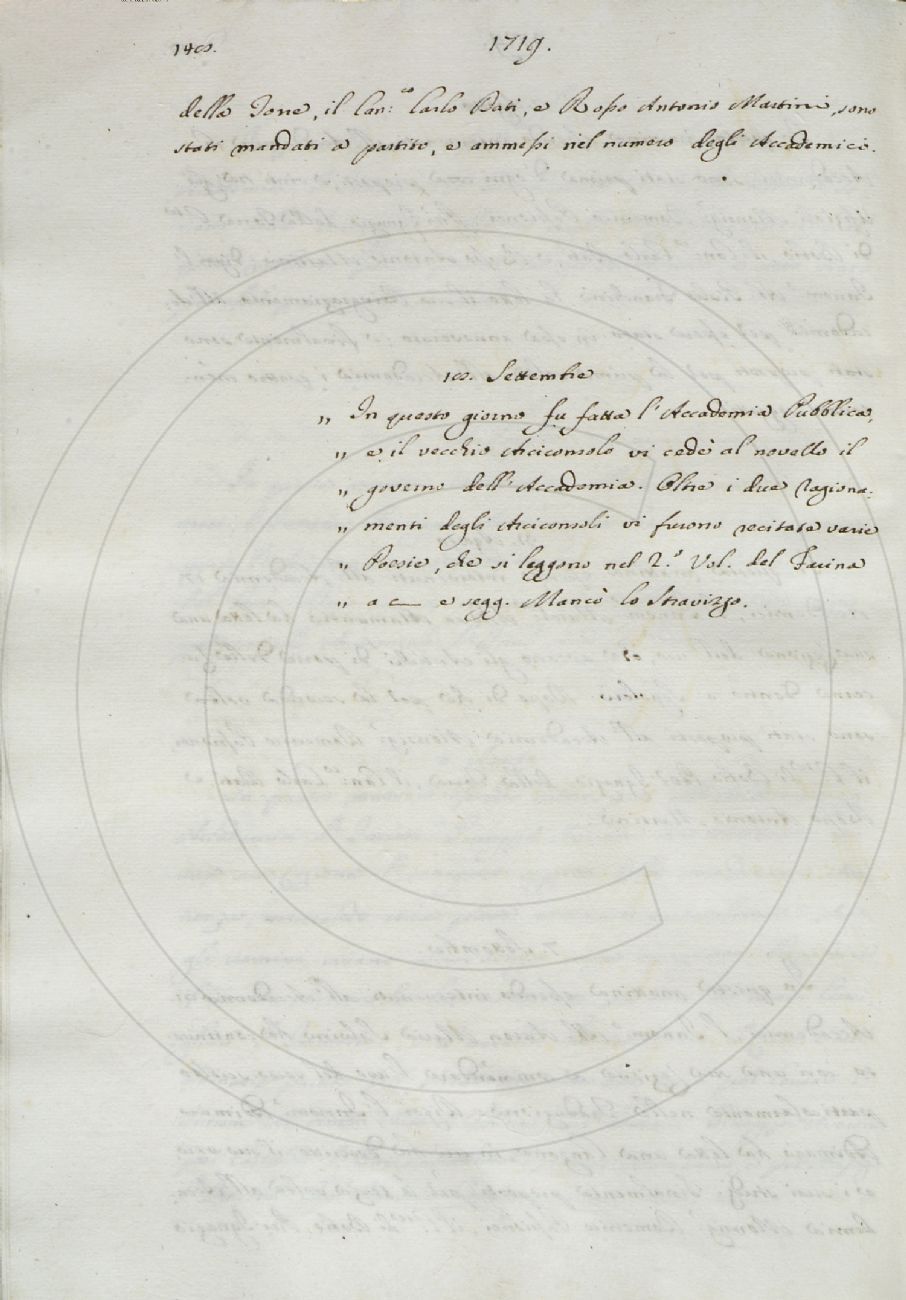 140. 1719.
della Torre, il Can:co Carlo Dati, e Rosso Antonio Martini, sono
stati mandati a partito, e ammessi nel numero degli Accademici.
10. Settembre
„ In questo giorno fu fatta l'Accademia Pubblica,
„ e il vecchio Arciconsolo vi cedè al novello il
„ governo dell'Accademia. Oltre i due ragiona-
„ menti degli Arciconsoli vi furono recitate varie
„ Poesie, che si leggono nel 2.° Vol. del Farina
„ a c — e segg. Mancò lo Stravizzo.